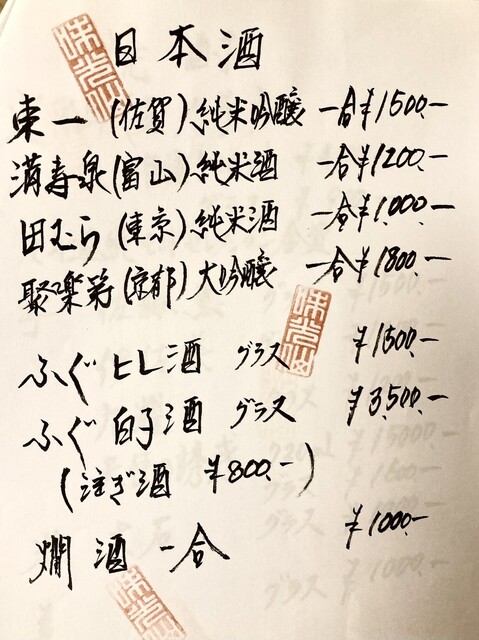 日本酒
東一(佐賀)純米吟醸 一合¥1500.-
満寿泉(富山)純米酒 一合¥1200.-
田むら(東京)純米酒 一合¥1,000.-
聚楽第(京都)大吟醸 一合¥1800.-
ふぐヒレ酒 グラス ¥1500.-
ふぐ白子酒 グラス ¥3,500.-
(注ぎ酒 ¥800.-)
燗酒 一合 ¥1000.-